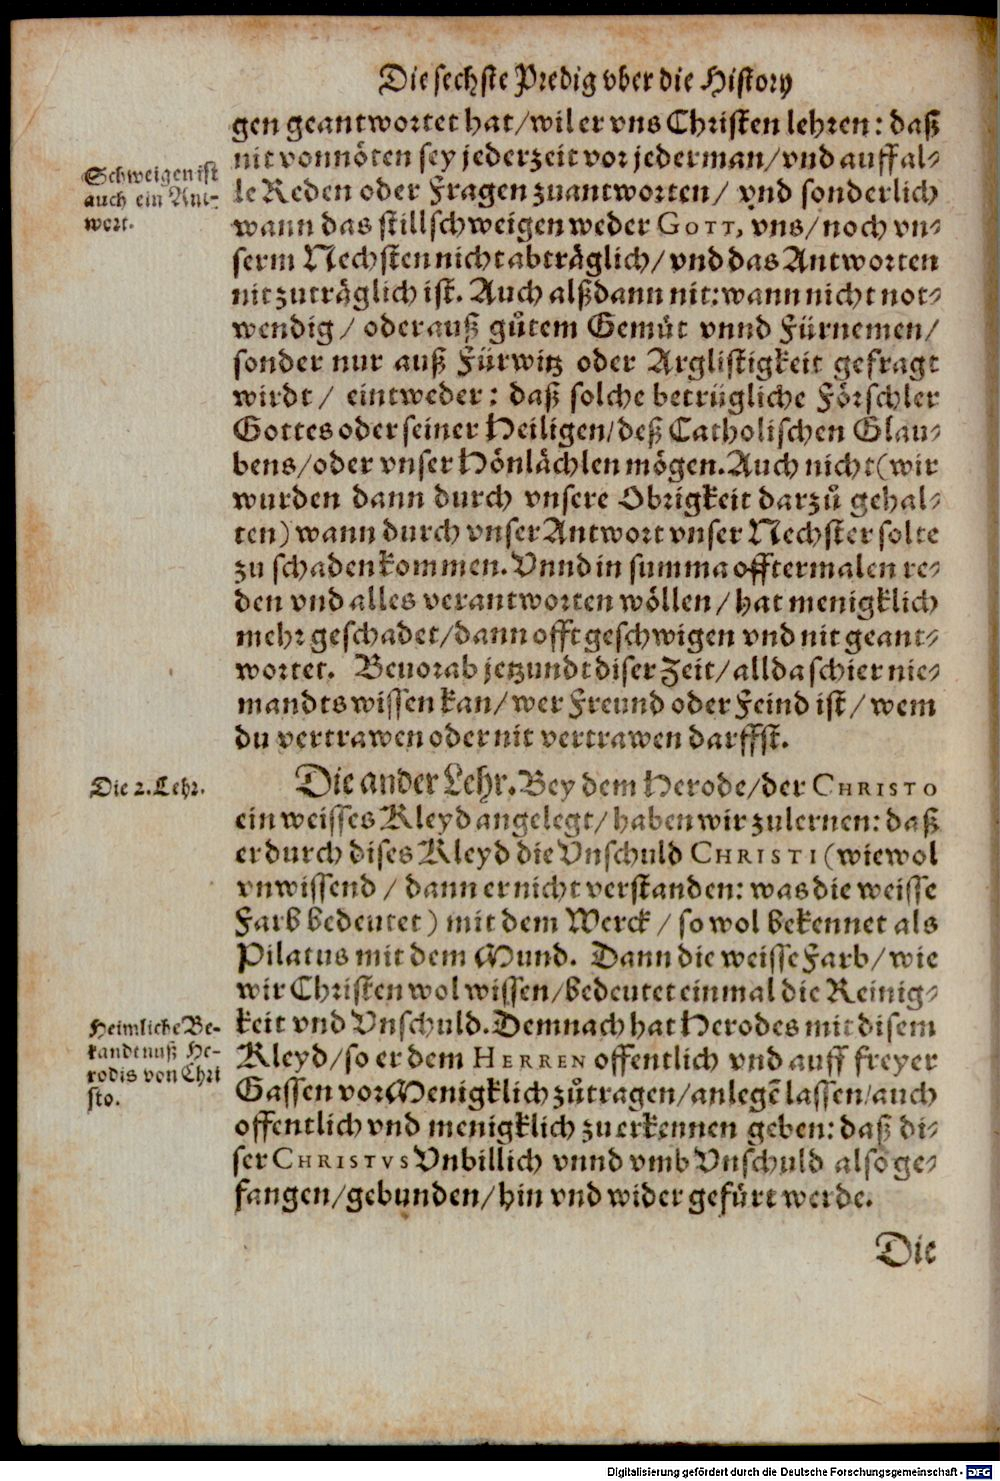 Die sechste Predig vber die History
gen geantwortet hat/ wil er vns Christen lehren: daß
nit vonnöten sey jederzeit vor jederman/ vnd auff al-
le Reden oder Fragen zuantworten/ vnd sonderlich
wann das stillschweigen weder GOTT, vns/ noch vn-
serm Nechsten nicht abträglich/ vnd das Antworten
nit zuträglich ist. Auch alßdann nit: wann nicht not-
wendig/ oder auß gůtem Gemüt vnnd Fürnemen/
sonder nur auß Fürwitz oder Arglistigkeit gefragt
wirdt/ eintweder: daß solche betrügliche Förschler
Gottes oder seiner Heiligen/ deß Catholischen Glau-
bens/ oder vnser Hönlächlen mögen. Auch nicht (wir
wurden dann durch vnsere Obrigkeit darzů gehal-
ten) wann durch vnser Antwort vnser Nechster solte
zu schaden kommen. Vnnd in summa offtermalen re-
den vnd alles verantworten wöllen/ hat menigklich
mehr geschadet/ dann offt geschwigen vnd nit geant-
wortet. Beuorab jetzundt diser Zeit/ allda schier nie-
mandts wissen kan/ wer Freund oder Feind ist/ wem
du vertrawen oder nit vertrawen darffst.
Schweigen ist
auch ein Ant-
wort.
Die ander Lehr. Bey dem Herode/ der CHRISTO
ein weisses Kleyd angelegt/ haben wir zulernen: daß
er durch dises Kleyd die Vnschuld CHRISTI (wiewol
vnwissend/ dann er nicht verstanden: was die weisse
Farb bedeutet) mit dem Werck/ so wol bekennet als
Pilatus mit dem Mund. Dann die weisse Farb/ wie
wir Christen wol wissen/ bedeutet einmal die Reinig-
keit vnd Vnschuld. Demnach hat Herodes mit disem
Kleyd/ so er dem HERREN offentlich vnd auff freyer
Gassen vor Menigklich zůtragen/ anlegẽ lassen/ auch
offentlich vnd menigklich zu erkennen geben: daß di-
ser CHRISTVS Vnbillich vnnd vmb Vnschuld also ge-
fangen/ gebunden/ hin vnd wider gefürt werde.
Die 2. Lehr.
Heimliche Be-
kandtnuß He-
rodis von Chri
sto.
Die
Digitalisierung gefördert durch die Deutsche Forschungsgemeinschaft - DFG